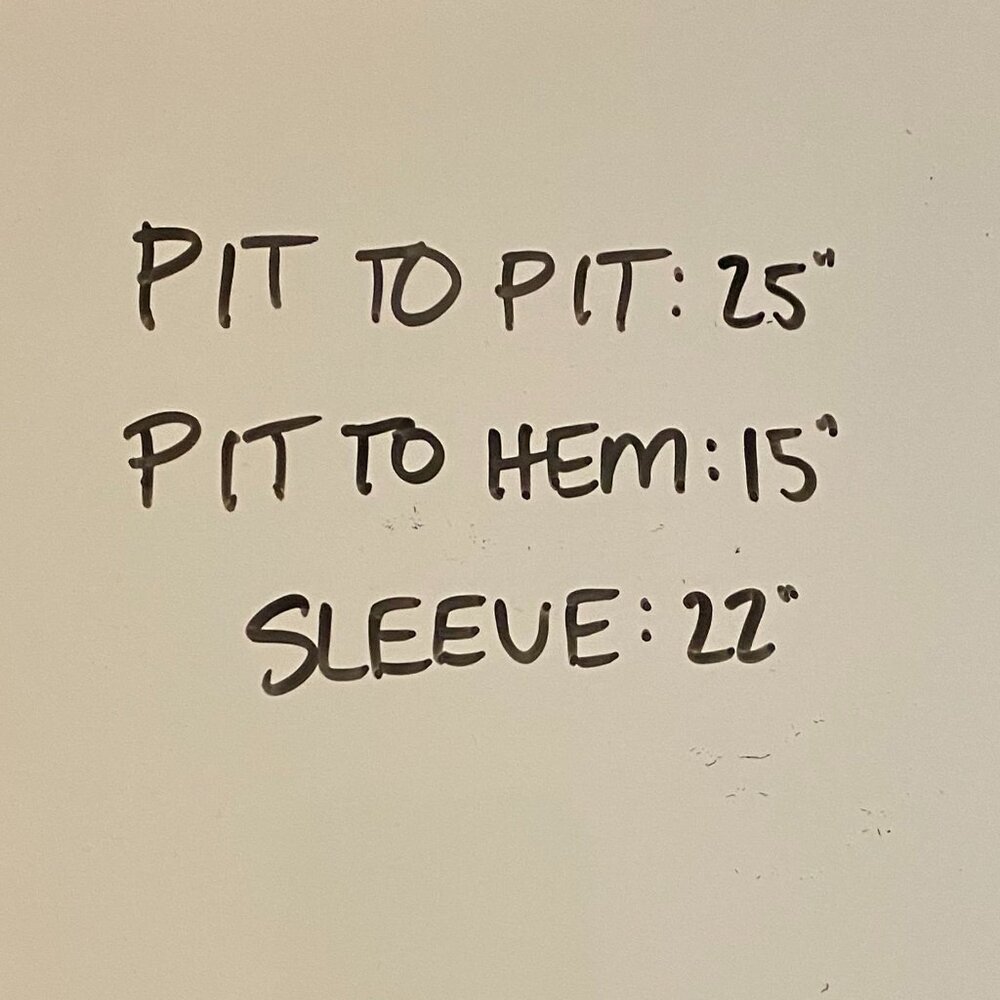 PIT TO PIT: 25"
PIT TO HEM: 15"
SLEEVE: 22"